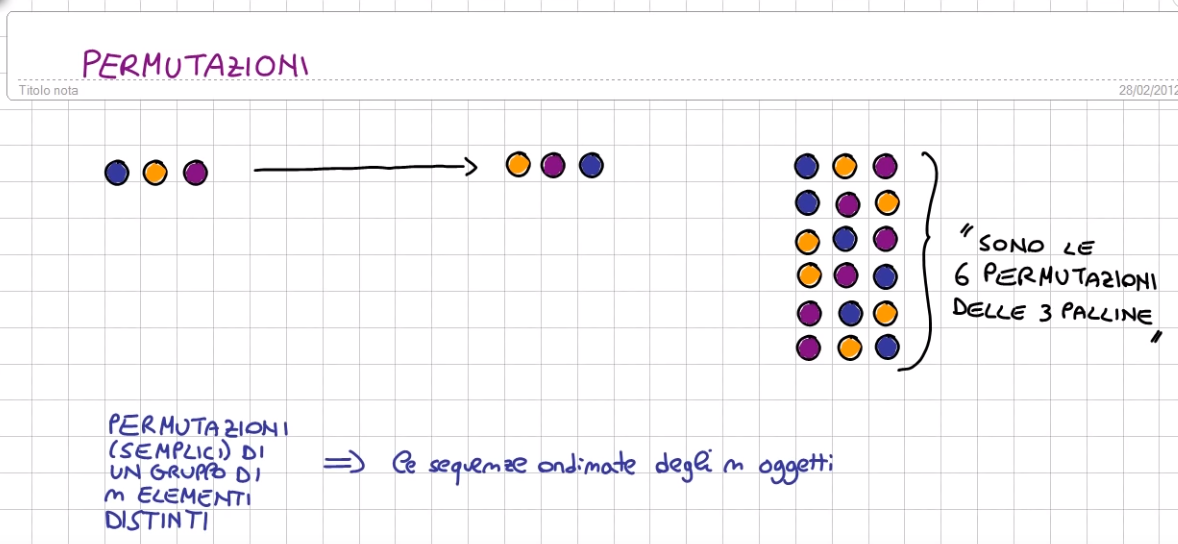 PERMUTAZIONI
Titolo nota
28/02/2012
"SONO LE
6 PERMUTAZIONI
DELLE 3 PALLINE"
PERMUTAZIONI
(SEMPLICI) DI
UN GRUPPO DI
n ELEMENTI
DISTINTI
=> le sequenze ordinate degli n oggetti